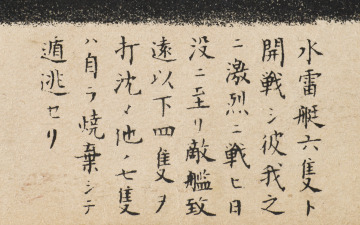 水雷艇六隻ト
開戦シ彼我之
ニ激烈ニ戦ヒ日
没ニ至リ敵艦致
遠以下四隻ヲ
打沈メ池ノ七隻
ハ自ラ焼棄シテ
遁逃セリ